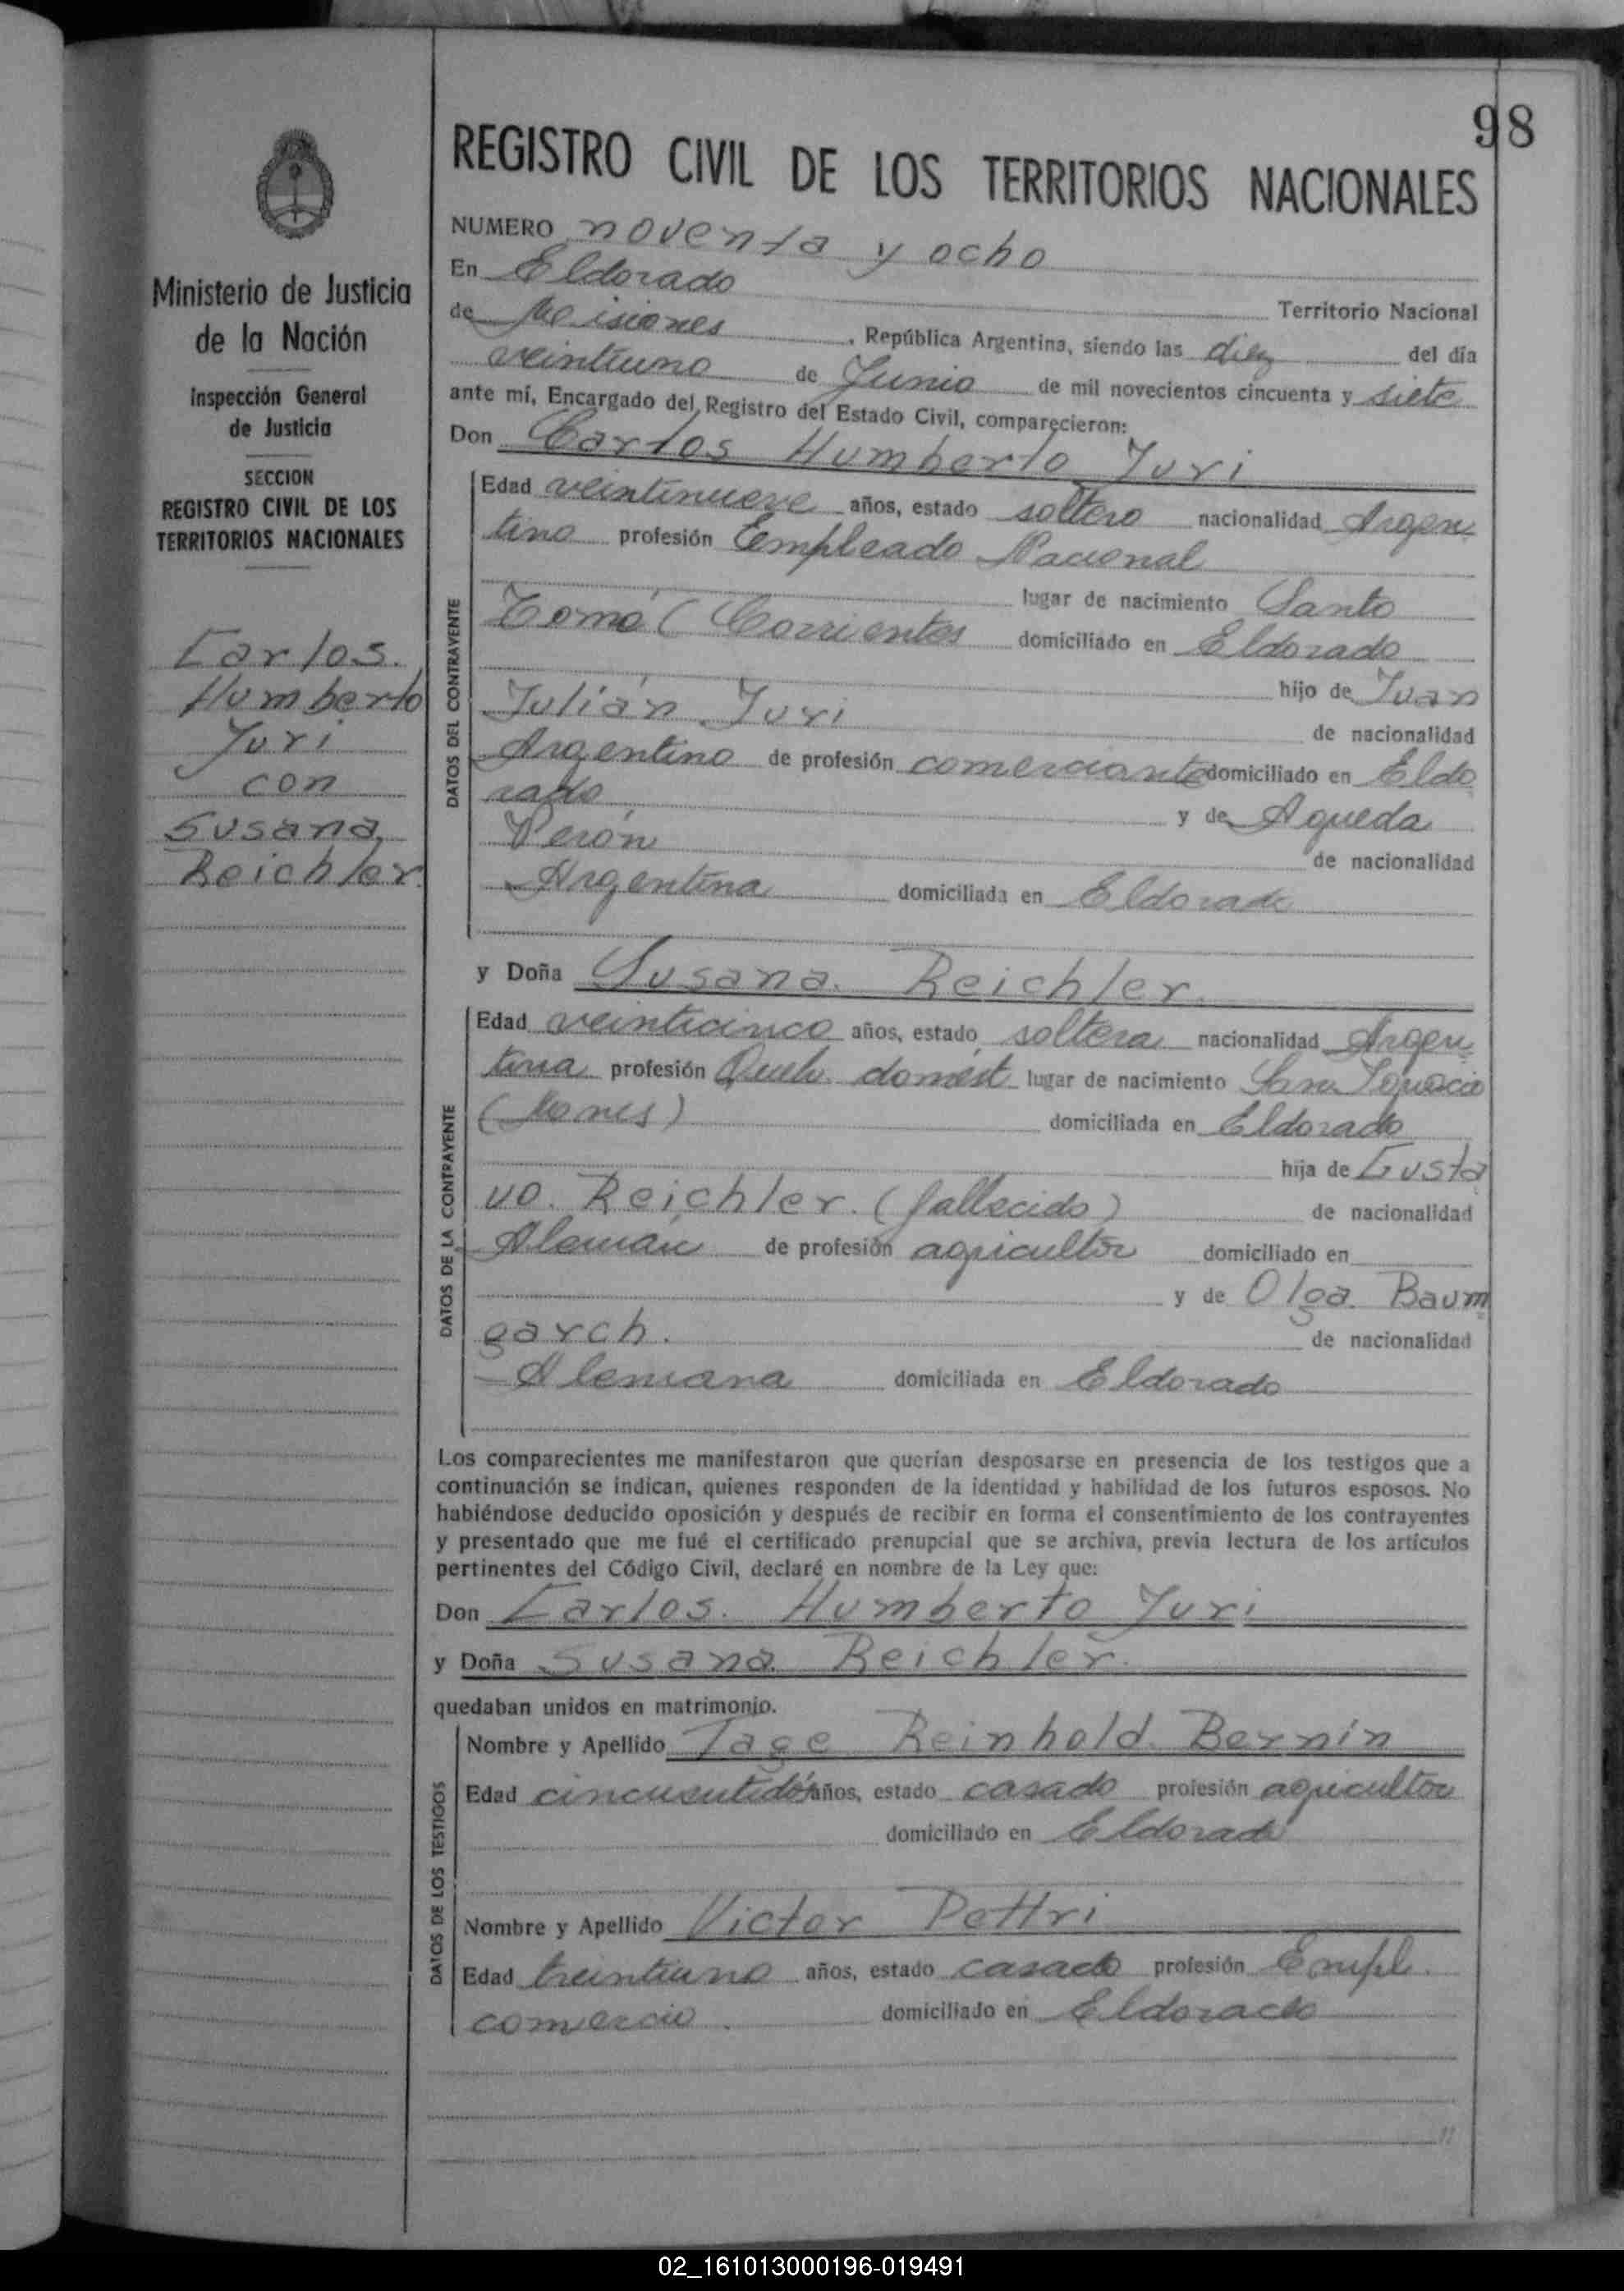 98
REGISTRO CIVIL DE LOS TERRITORIOS NACIONALES
Ministerio de Justicia
de la Nación
Inspección General
de Justicia
SECCION
REGISTRO CIVIL DE LOS
TERRITORIOS NACIONALES
Carlos.
Humberto
Yuri
con
Susana
Reichler.
NUMERO noventa y ocho
En Eldorado
Territorio Nacional
de Misiones, República Argentina, siendo las diez del día
veintiuno de Junio de mil novecientos cincuenta y siete
ante mí, Encargado del Registro del Estado Civil, comparecieron:
Don Carlos Humberto Yuri
DATOS DEL CONTRAYENTE
Edad veintinueve años, estado soltero nacionalidad Argen
tino profesión Empleado Nacional
lugar de nacimiento Santo
Tomé (Corrientes domiciliado en Eldorado
hijo de Juan
Julián Yuri
de nacionalidad
Argentino de profesión comerciante domiciliado en Eldo
rado
y de Agueda
Perón
de nacionalidad
Argentina domiciliada en Eldorado
y Doña Susana. Reichler.
DATOS DE LA CONTRAYENTE
Edad veinticinco años, estado soltera nacionalidad Argen
tina profesión domést lugar de nacimiento San Ignacio
(Mones) domiciliada en Eldorado
hija de Gusta
vo. Reichler. (fallecido)
de nacionalidad
Alemán de profesión agricultor domiciliado en
y de Olga. Baum
garch.
de nacionalidad
Alemana domiciliada en Eldorado
Los comparecientes me manifestaron que querían desposarse en presencia de los testigos que a
continuación se indican, quienes responden de la identidad y habilidad de los futuros esposos. No
habiéndose deducido oposición y después de recibir en forma el consentimiento de los contrayentes
y presentado que me fué el certificado prenupcial que se archiva, previa lectura de los artículos
pertinentes del Código Civil, declaré en nombre de la Ley que:
Don Carlos. Humberto Yuri
y Doña Susana. Reichler.
quedaban unidos en matrimonio.
DATOS DE LOS TESTIGOS
Nombre y Apellido Tage Reinhold. Bernin
Edad cincuentidós años, estado casado profesión agricultor
domiciliado en Eldorado
Nombre y Apellido Victor Pettri
Edad treintiuno años, estado casado profesión Empl.
comercio. domiciliado en Eldorado
02_161013000196-019491